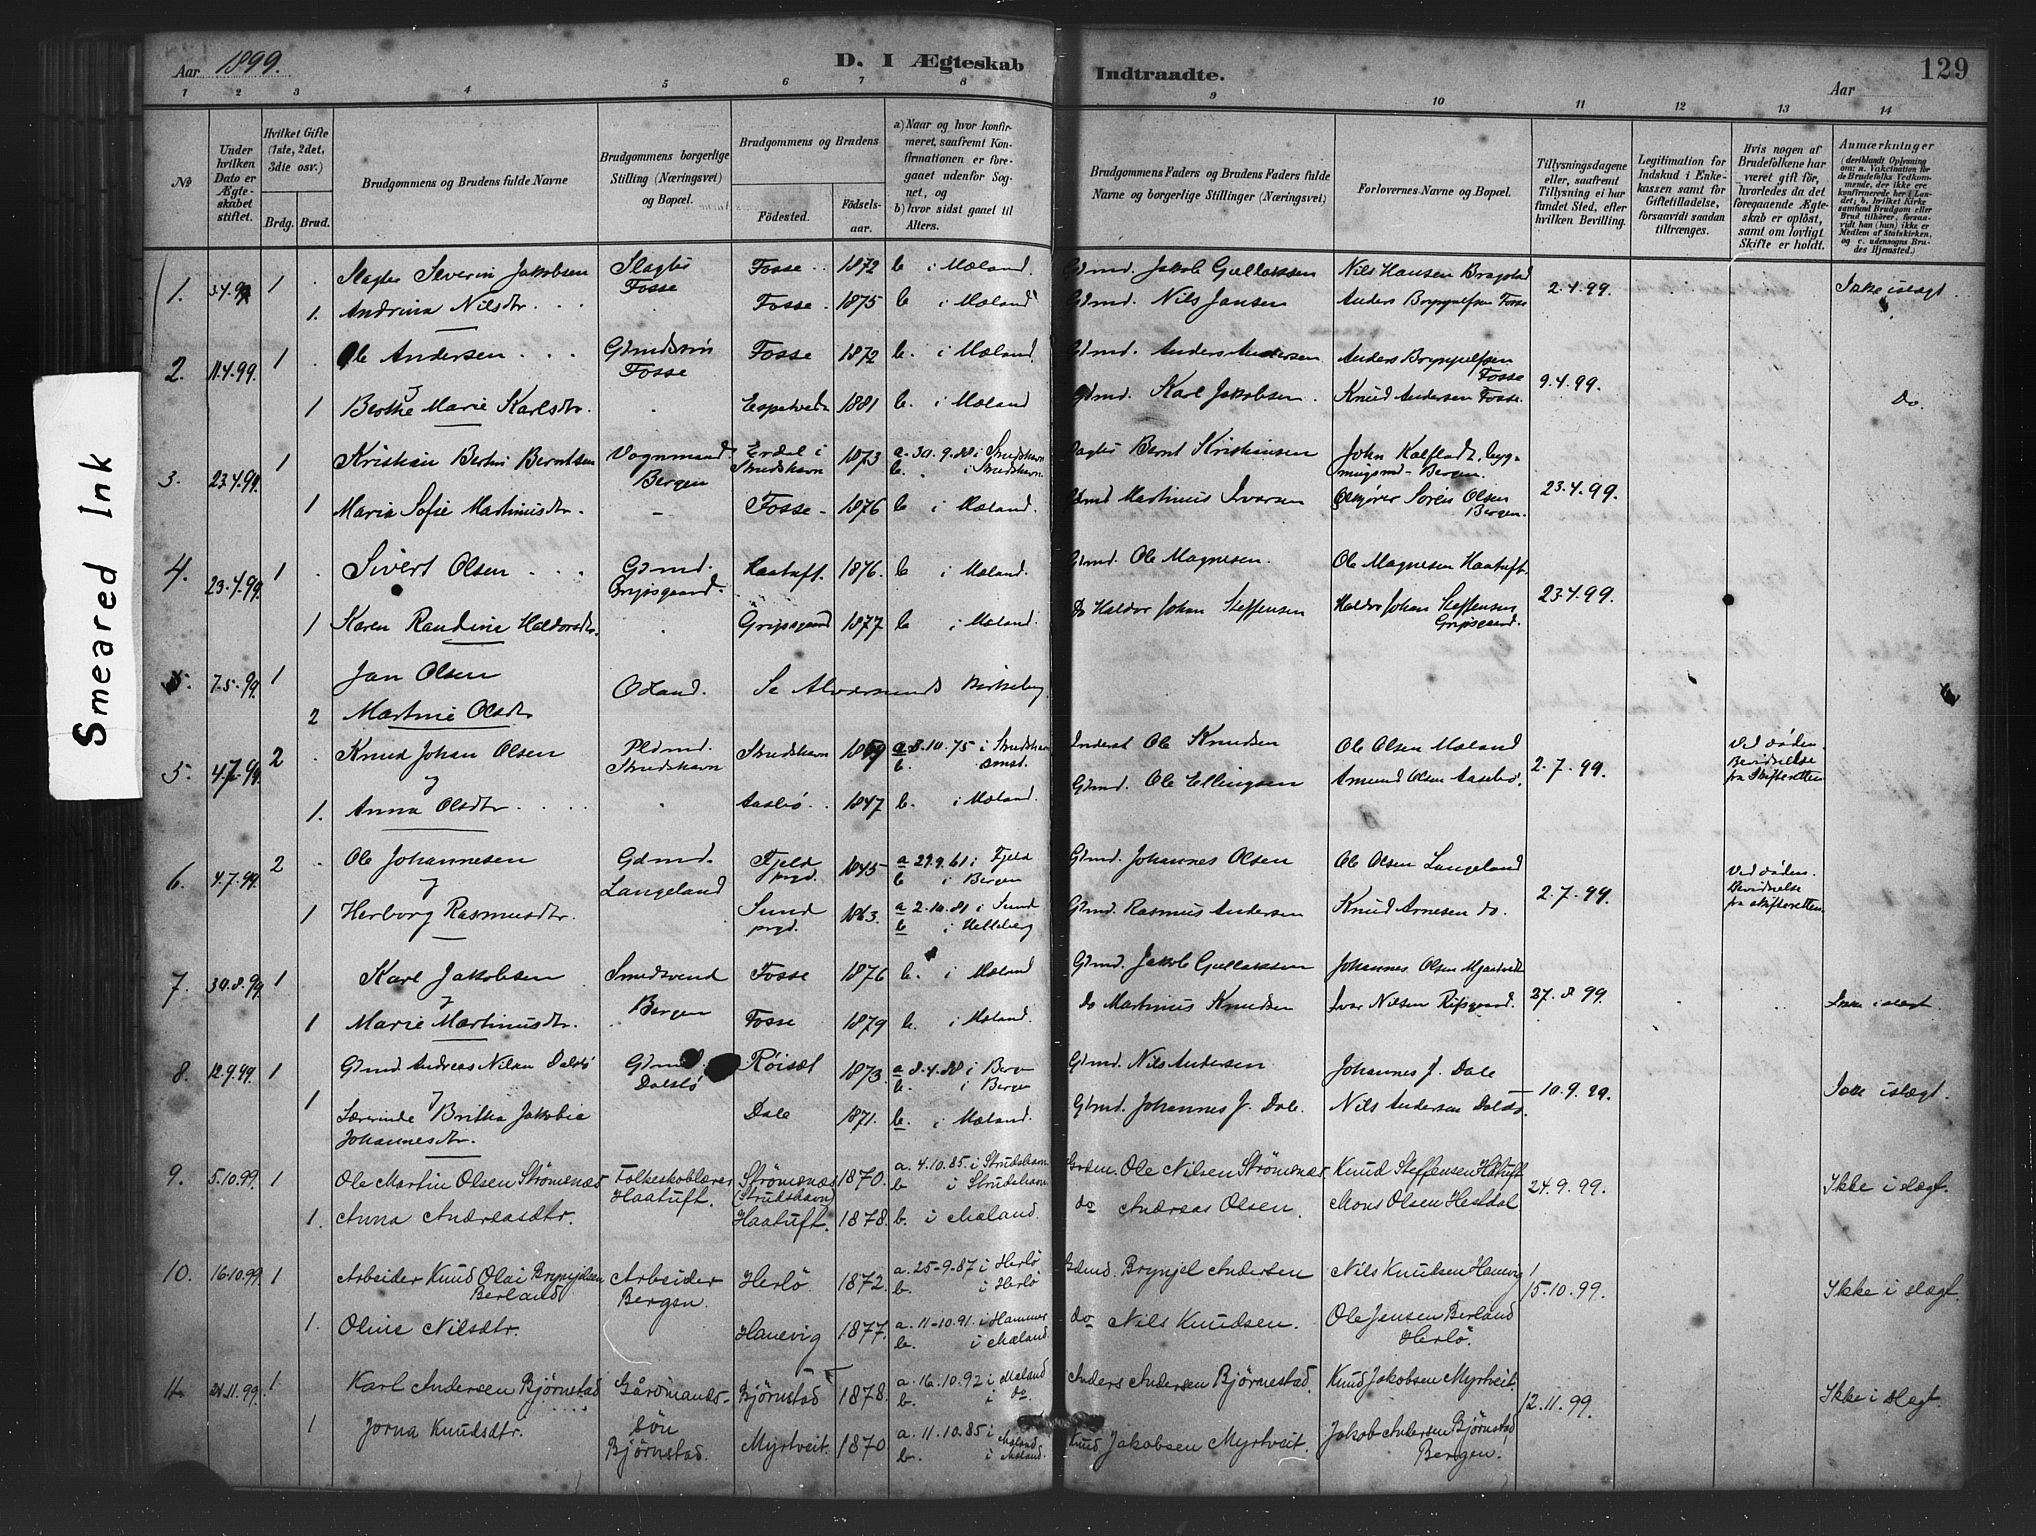 Aar 1899.
D. I Ægteskab Indtraadte.
Aar
129
1 2 3 4 5 6 7 8 9 10 11 12 13 14
№
Under hvilken Dato er Ægteskabet stiftet.
Hvilket Gifte (1ste, 2det, 3die osv.)
Brdg. Brud.
Brudgommens og Brudens fulde Navne
Brudgommens borgerlige Stilling (Næringsvei) og Bopæl.
Brudgommens og Brudens
Födested.
Födselsaar.
a) Naar og hvor konfirmeret, saafremt Konfirmationen er foregaaet udenfor Sognet, og
b) hvor sidst gaaet til Alters.
Brudgommens Faders og Brudens Faders fulde Navne og borgerlige Stillinger (Næringsvei)
Forlovernes Navne og Bopæl.
Tillysningsdagene eller, saafremt Tillysning ei har fundet Sted, efter hvilken Bevilling.
Legitimation for Indskud i Enkekassen samt for Giftetilladelse, forsaavidt saadan tiltrænges.
Hvis nogen af Brudefolkene har været gift før, hvorledes da det foregaaende Ægteskab er opløst, samt om lovligt Skifte er holdt.
Anmærkninger
Smeared Ink
1. 3.4.99 1 Slagter Severin Jakobsen Slagter Fosse Fosse 1872 b i Mæland. Gdmd. Jakob Gullaksen Nils Hansen Bragstad 2.4.99. Ikke i slægt.
1. Andrina Nilsdtr. Fosse 1875 b i Mæland Gdmd. Nils Jansen Anders Brynjulfsen Fosse
2. 11.4.99. 1 Ole Andersen Gdmdssøn Fosse Fosse 1872 b. i Mæland. Gdmd. Anders Andersen Anders Brynjulfsen Fosse 9.4.99.
1 Berthe Marie Karlsdtr. Espetvedt 1881 b i Mæland Gdmd. Karl Jakobsen. Knud Andersen Fosse. Do.
3. 23.4.99. 1 Kristian Bertin Berntsen Vognmand Bergen Erdal i Strudshavn 1873 a. 30.9.88 i Strudshavn b. i Strudshavn. Bernt Kristiansen John Bergen. 23.4.99.
1 Maria Sofie Martinusdtr. - Fosse 1876 b i Mæland. Gdmd Martinus Ivarsen Sören Olsen Bergen.
4. 23.4.99. 1 Sivert Olsen Gdmd. Gripsgaard. Haatuft. 1876. b i Mæland. Gdmd. Ole Magnesen. Ole Magnesen Haatuft. 23.4.99.
1 Karen Randine Haldorsdtr. Gripsgaard 1877 b i Mæland. Do Haldor Johan Steffensen Haldor Johan Steffensen Gripsgaard.
5. 7.5.99. 1 Jan Olsen Odland. Se Alversunds Kirkebog.
2 Martine Olsdtr
5. 4.7.99. 2 Knud Johan Olsen Pldmd. Strudshavn Strudshavn a 3.10.75 i Strudshavn b. Inderst Ole Knudsen Ole Olsen Mæland 2.7.99. Ved døden. Bevidnelse fra Skifteretten
1. Anna Olsdtr. Aasebø 1847 b. i Mæland. Gdmd. Ole Ellingsen Amund Olsen Aasebø.
6. 4.7.99. 2 Ole Johannesen Gdmd. Langeland Fjeld prgd. 1845 a 29.9.61 i Fjeld b i Bergen Gdmd. Johannes Olsen Ole Olsen Langeland 2.7.99. Ved døden. Bevidnelse fra skifteretten.
1 Herborg Rasmusdtr. Sund prgd. 1863. a 2.10.81 i Sund b i Gdmd. Rasmus Andersen Knud Arnesen do.
7. 30.8.99. 1 Karl Jakobsen Smedsvend Bergen Fosse 1876 b. i Mæland Gdmd. Jakob Gullaksen Johannes Olsen Mjaatvedt 27.8.99. Ikke i slægt
1 Marie Martinusdtr. Fosse 1879 b. i Mæland. Do Martinus Knudsen Ivar Nilsen
8. 12.9.99. 1 Gdmd Andreas Nilsen Dalsbø Gdmd. Dalsbø Röiset 1873. a 8.4.88 i Bergen b. i Bergen Gdmd. Nils Andersen Johannes J. Dale 10.9.99. Ikke i slægt.
1 Lærerinde Britha Jakobia Johannesdtr. Dale 1871. b. i Mæland. Gdmd. Johannes J. Dale. Nils Andersen Dalsbø.
9. 5.10.99. 1 Ole Martin Olsen Strömsnæs Folkeskolelærer Haatuft. Strömsnæs (Strudshavn) 1870. a. 4.10.85. i Strudshavn b i Strudshavn. Gdm. Ole Nilsen Strömsnæs Knud Steffensen Hatuft 24.9.99. Ikke i slægt.
1. Anna Andreasdtr. Haatuft. 1878. b. i Mæland. do Andreas Olsen. Mons Olsen Hesdal
10. 16.10.99. 1 Arbeider Knud Olai Brynjelsen Berland Arbeider Bergen. Herlö 1872. a. 25-9-87 i Herlö b. i Herlö Gdmd. Brynjel Andersen Nils Knudsen Hanevig 15.10.99. Ikke i slægt.
1. Oline Nilsdtr. Hanevig 1877. a. 11-10.91. i Hammer b. i Mæland. do Nils Knudsen. Ole Jensen Berland Herlö.
11. 21.11.99. 1 Karl Andersen Björnstad Gårdmandssön Björnstad. Björnstad 1878. a. 16.10.92 i Mæland b. i do. Anders Andersen Björnestad. Knud Jakobsen Myrtveit. 12.11.99. Ikke i slægt.
1 Jorna Knudsdtr. Myrtveit. 1870 a. 11.10.85 i Mæland b. i Mæland. Knud Jakobsen Myrtveit. Jakob Andersen Björnstad, Bergen.